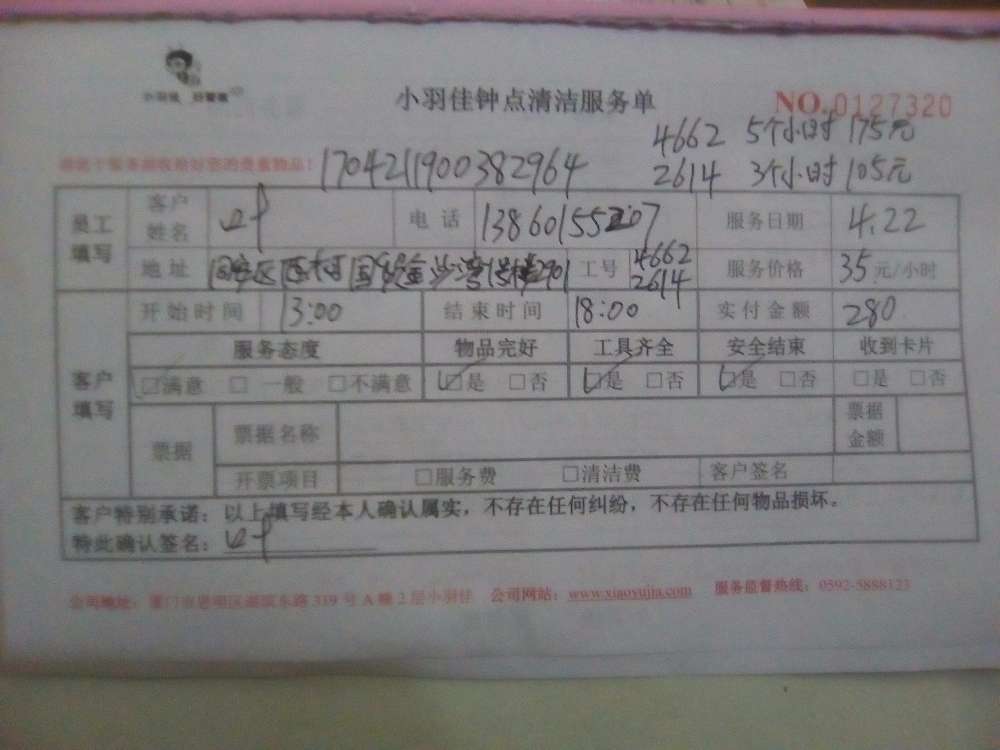 小羽佳 好管理
小羽佳钟点清洁服务单 NO.0127320
4662 5个小时 175元
请您于服务前收拾好您的贵重物品! 1704211900382964 2614 3个小时 105元
员工填写 客户姓名 叶 电话 服务日期 4.22
地址 工号 4662 2614 服务价格 35元/小时
客户填写 开始时间 13:00 结束时间 18:00 实付金额 280
服务态度 物品完好 工具齐全 安全结束 收到卡片
□满意 □一般 □不满意 □是 □否 □是 □否 □是 □否 □是 □否
票据 票据名称 票据金额
开票项目 □服务费 □清洁费 客户签名
客户特别承诺:以上填写经本人确认属实,不存在任何纠纷,不存在任何物品损坏。
特此确认签名:叶
公司地址:厦门市思明区湖滨东路319号A幢2层小羽佳 公司网站:www.xiaoyujia.com 服务监督热线:0592-5888123